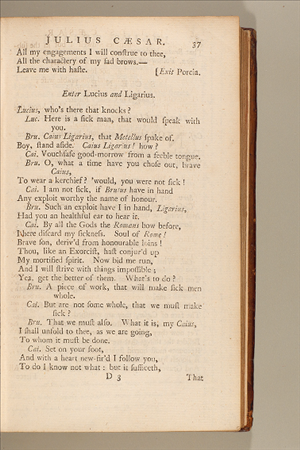 JULIUS CÆSAR. 37
All my engagements I will conſtrue to thee,
All the charactery of my ſad brows.—
Leave me with haſte. [Exit Porcia.
Enter Lucius and Ligarius.
Lucius, who's there that knocks?
Luc. Here is a ſick man, that would ſpeak with
you.
Bru. Caius Ligarius, that Metellus ſpoke of.
Boy, ſtand aſide. Caius Ligarius! how?
Cai. Vouchſafe good-morrow from a feeble tongue.
Bru. O, what a time have you choſe out, brave
Caius,
To wear a kerchief? 'would, you were not ſick!
Cai. I am not ſick, if Brutus have in hand
Any exploit worthy the name of honour.
Bru. Such an exploit have I in hand, Ligarius,
Had you an healthful ear to hear it.
Cai. By all the Gods the Romans bow before,
I here diſcard my ſickneſs. Soul of Rome!
Brave ſon, deriv'd from honourable loins!
Thou, like an Exorciſt, haſt conjur'd up
My mortified ſpirit. Now bid me run,
And I will ſtrive with things impoſſible;
Yea, get the better of them. What's to do?
Bru. A piece of work, that will make ſick men
whole.
Cai. But are not ſome whole, that we muſt make
ſick?
Bru. That we muſt alſo. What it is, my Caius,
I ſhall unfold to thee, as we are going,
To whom it muſt be done.
Cai. Set on your foot,
And with a heart new-fir'd I follow you,
To do I know not what: but it ſufficeth,
D 3 That